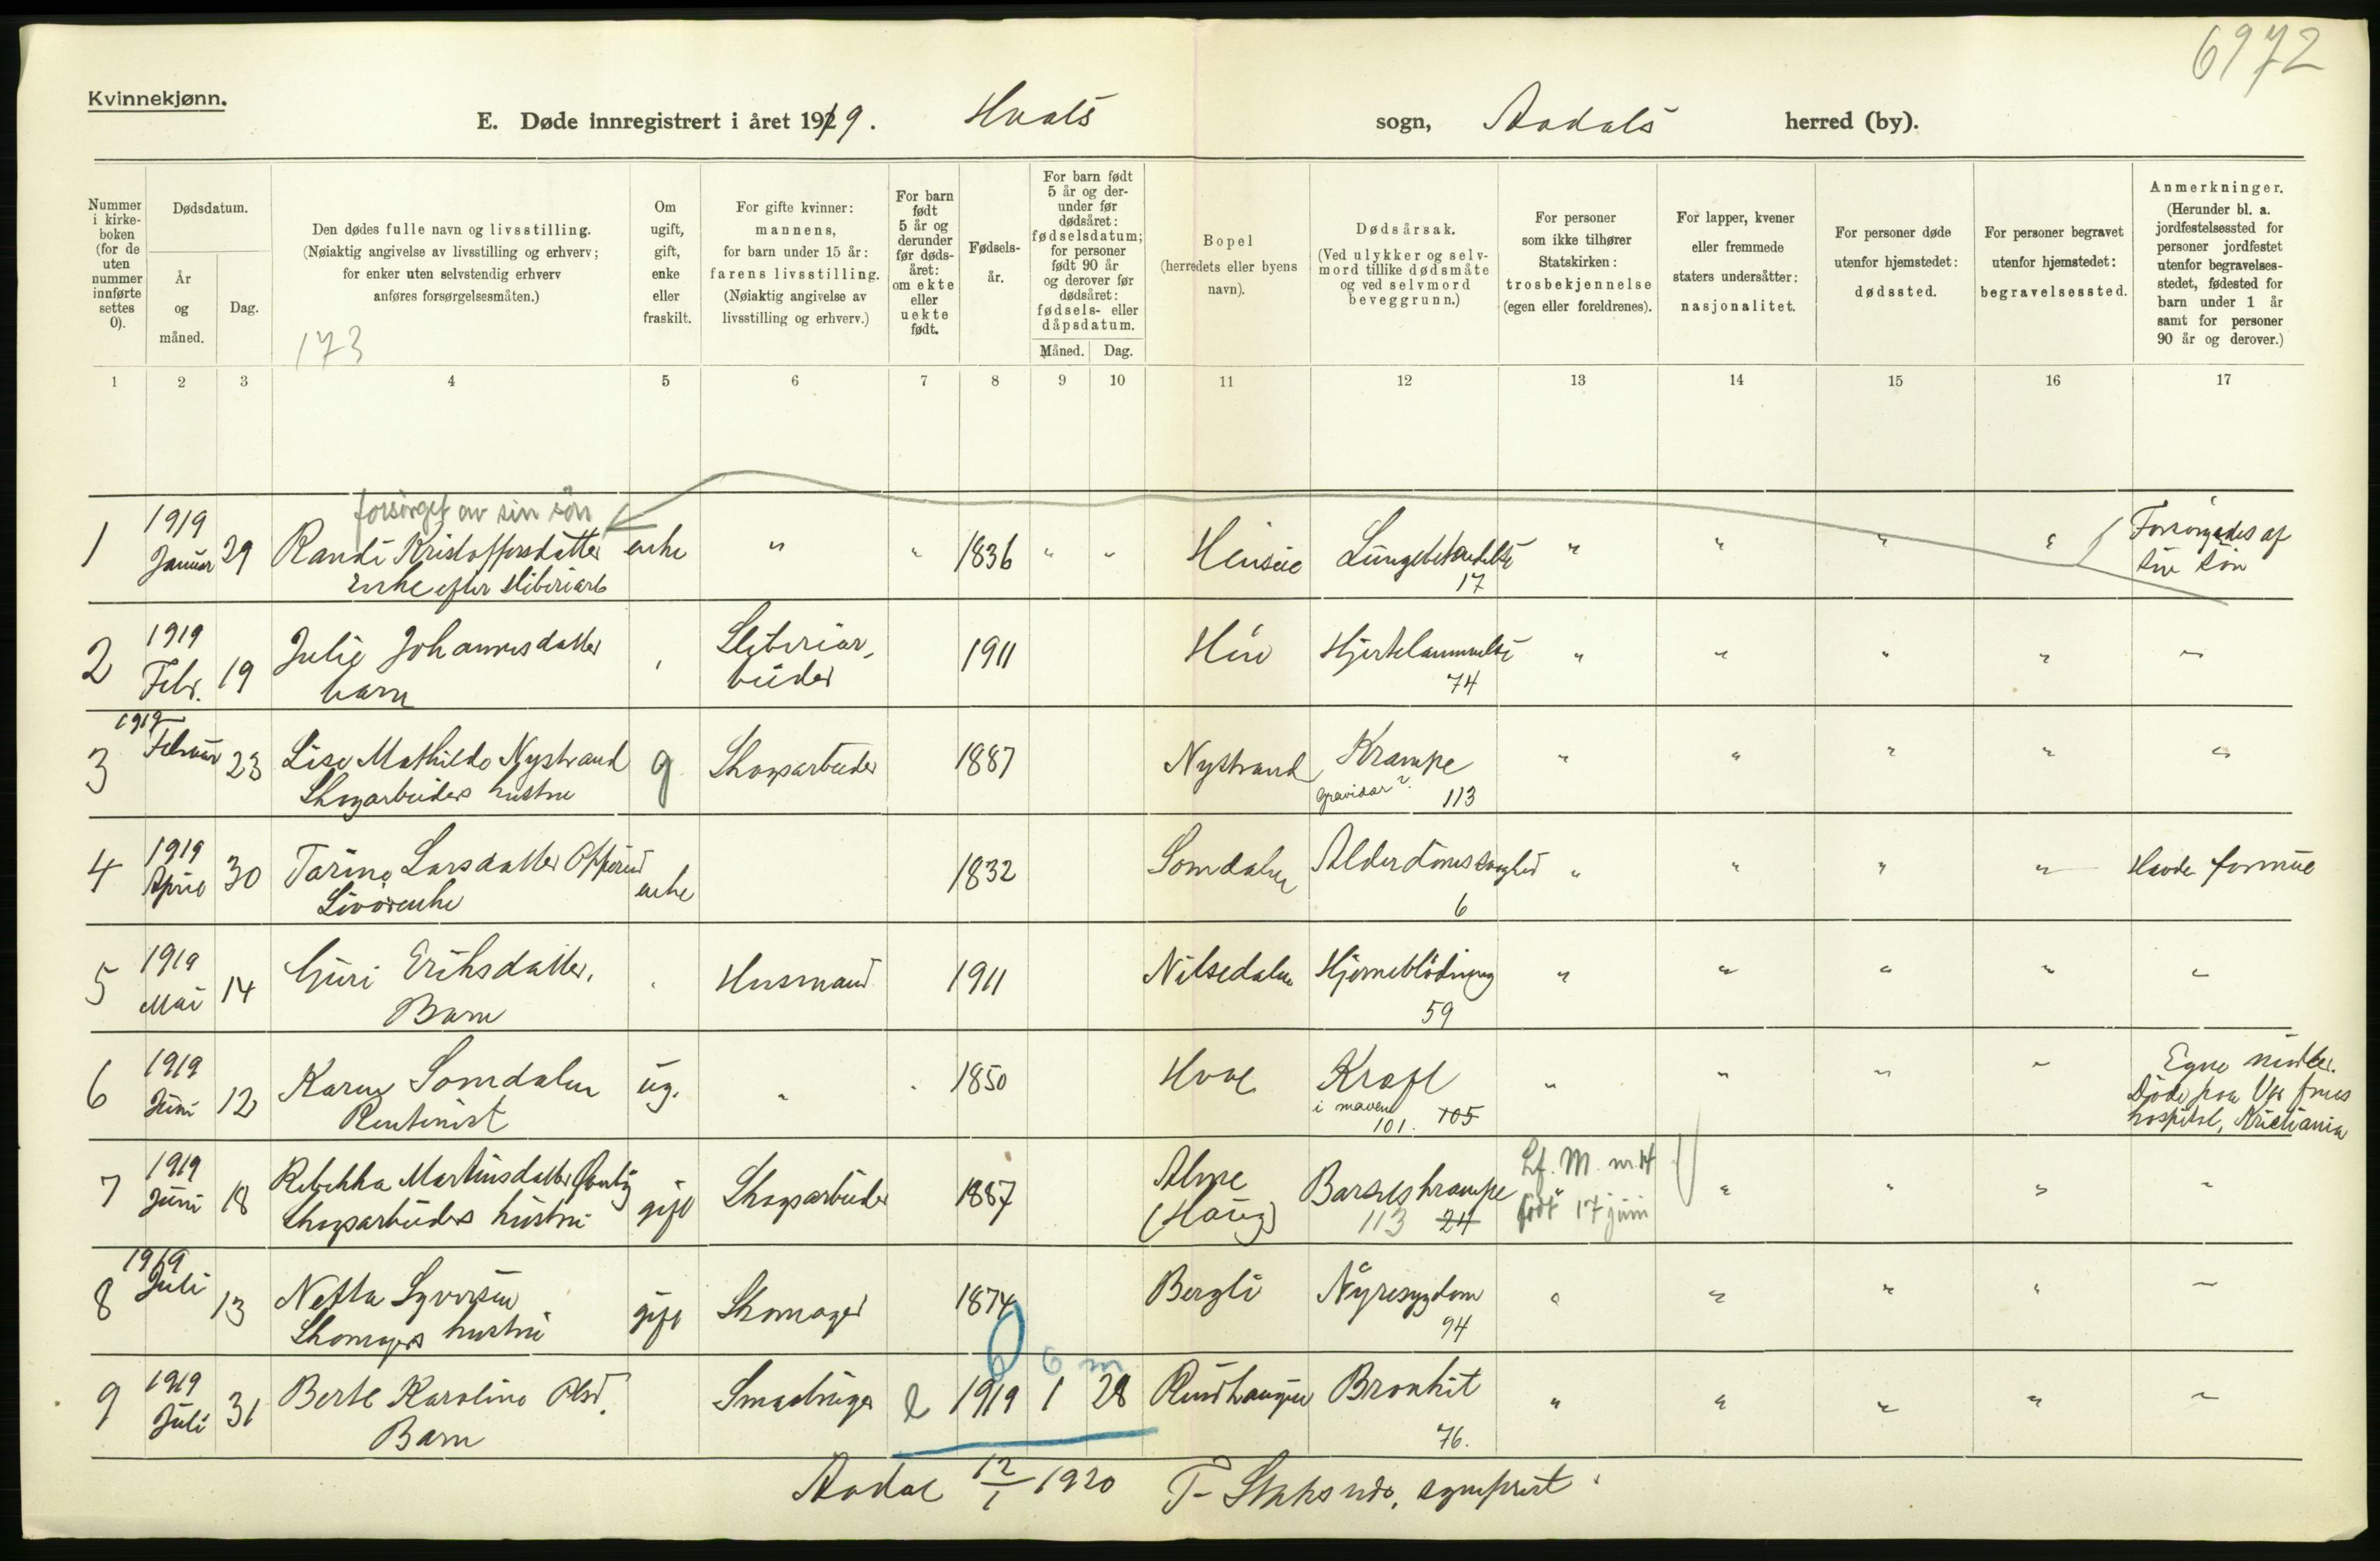 6972
Kvinnekjønn.
E. Døde innregistrert i året 1919. Hvals sogn, Aadals herred (by).
Nummer i kirkeboken (for de uten nummer innførte settes 0).
Dødsdatum.
År og måned.
Dag.
Den dødes fulle navn og livsstilling.
(Nøiaktig angivelse av livsstilling og erhverv;
for enker uten selvstendig erhverv
anføres forsørgelsesmåten.)
173
Om ugift, gift, enke eller fraskilt.
For gifte kvinner:
mannens,
for barn under 15 år:
farens livsstilling.
(Nøiaktig angivelse av
livsstilling og erhverv.)
For barn født 5 år og derunder før dødsåret: om ekte eller uekte født.
Fødselsår.
For barn født 5 år og derunder før dødsåret: fødselsdatum; for personer født 90 år og derover før dødsåret: fødsels- eller dåpsdatum.
Måned. Dag.
Bopel
(herredets eller byens
navn).
Dødsårsak.
(Ved ulykker og selvmord tillike dødsmåte og ved selvmord beveggrunn.)
For personer
som ikke tilhører
Statskirken:
trosbekjennelse
(egen eller foreldrenes).
For lapper, kvener
eller fremmede
staters undersåtter:
nasjonalitet.
For personer døde
utenfor hjemstedet:
dødssted.
For personer begravet
utenfor hjemstedet:
begravelsessted.
Anmerkninger.
(Herunder bl. a.
jordfestelsessted for
personer jordfestet
utenfor begravelses-
stedet, fødested for
barn under 1 år
samt for personer
90 år og derover.)
1 2 3 4 5 6 7 8 9 10 11 12 13 14 15 16 17
forsörget av sin sön
1 1919 Januar 29 Randi Kristoffersdatter enke " " 1836 " " Lungebetendelse " " " " Forsörgedes af
Enke efter sliberiarb 17 sin sön
2 1919 Febr. 19 Julie Johannesdatter Sliberiar- 1911 Hjertelammelse " " " " "
barn beider 74
3 1919 Februar 23 Lise Mathilde Nystrand g Skogsarbeider 1887 Nystrand Krampe " " " " "
Skogarbeiders hustru gravidar ? 113
4 1919 April 30 Larsdatter enke 1832 Somdalen Alderdomssvaghed " " " " Havde formue
6
5 1919 Mai 14 Guri Eriksdatter. Husmand 1911 Nilsedalen Hjerneblödning " " " " "
Barn 59
6 1919 Juni 12 Karen Somdalen ug. " " 1850 Hval Kræft " " " " Egne midler.
Rentenist i maven 101. 105 Döde paa Vor frues
hospital, Kristiania
7 1919 Juni 18 Rebekka Martinsdatter gift Skogsarbeider 1887 (Haug) Barselskrampe Lf. M. nr. 14 " " " "
Skogsarbeiders hustru 113 24 födt 17 juni
8 1919 Juli 13 Netta Syversen gift Skomager 1874 Bergli Nyresygdom " " " " "
Skomagers hustru 94
0 6 m
9 1919 Juli 31 Berte Karoline Olsd. e 1919 1 28 Bronkit " " " " "
Barn 76.
Aadal 12/1 1920 sogneprest